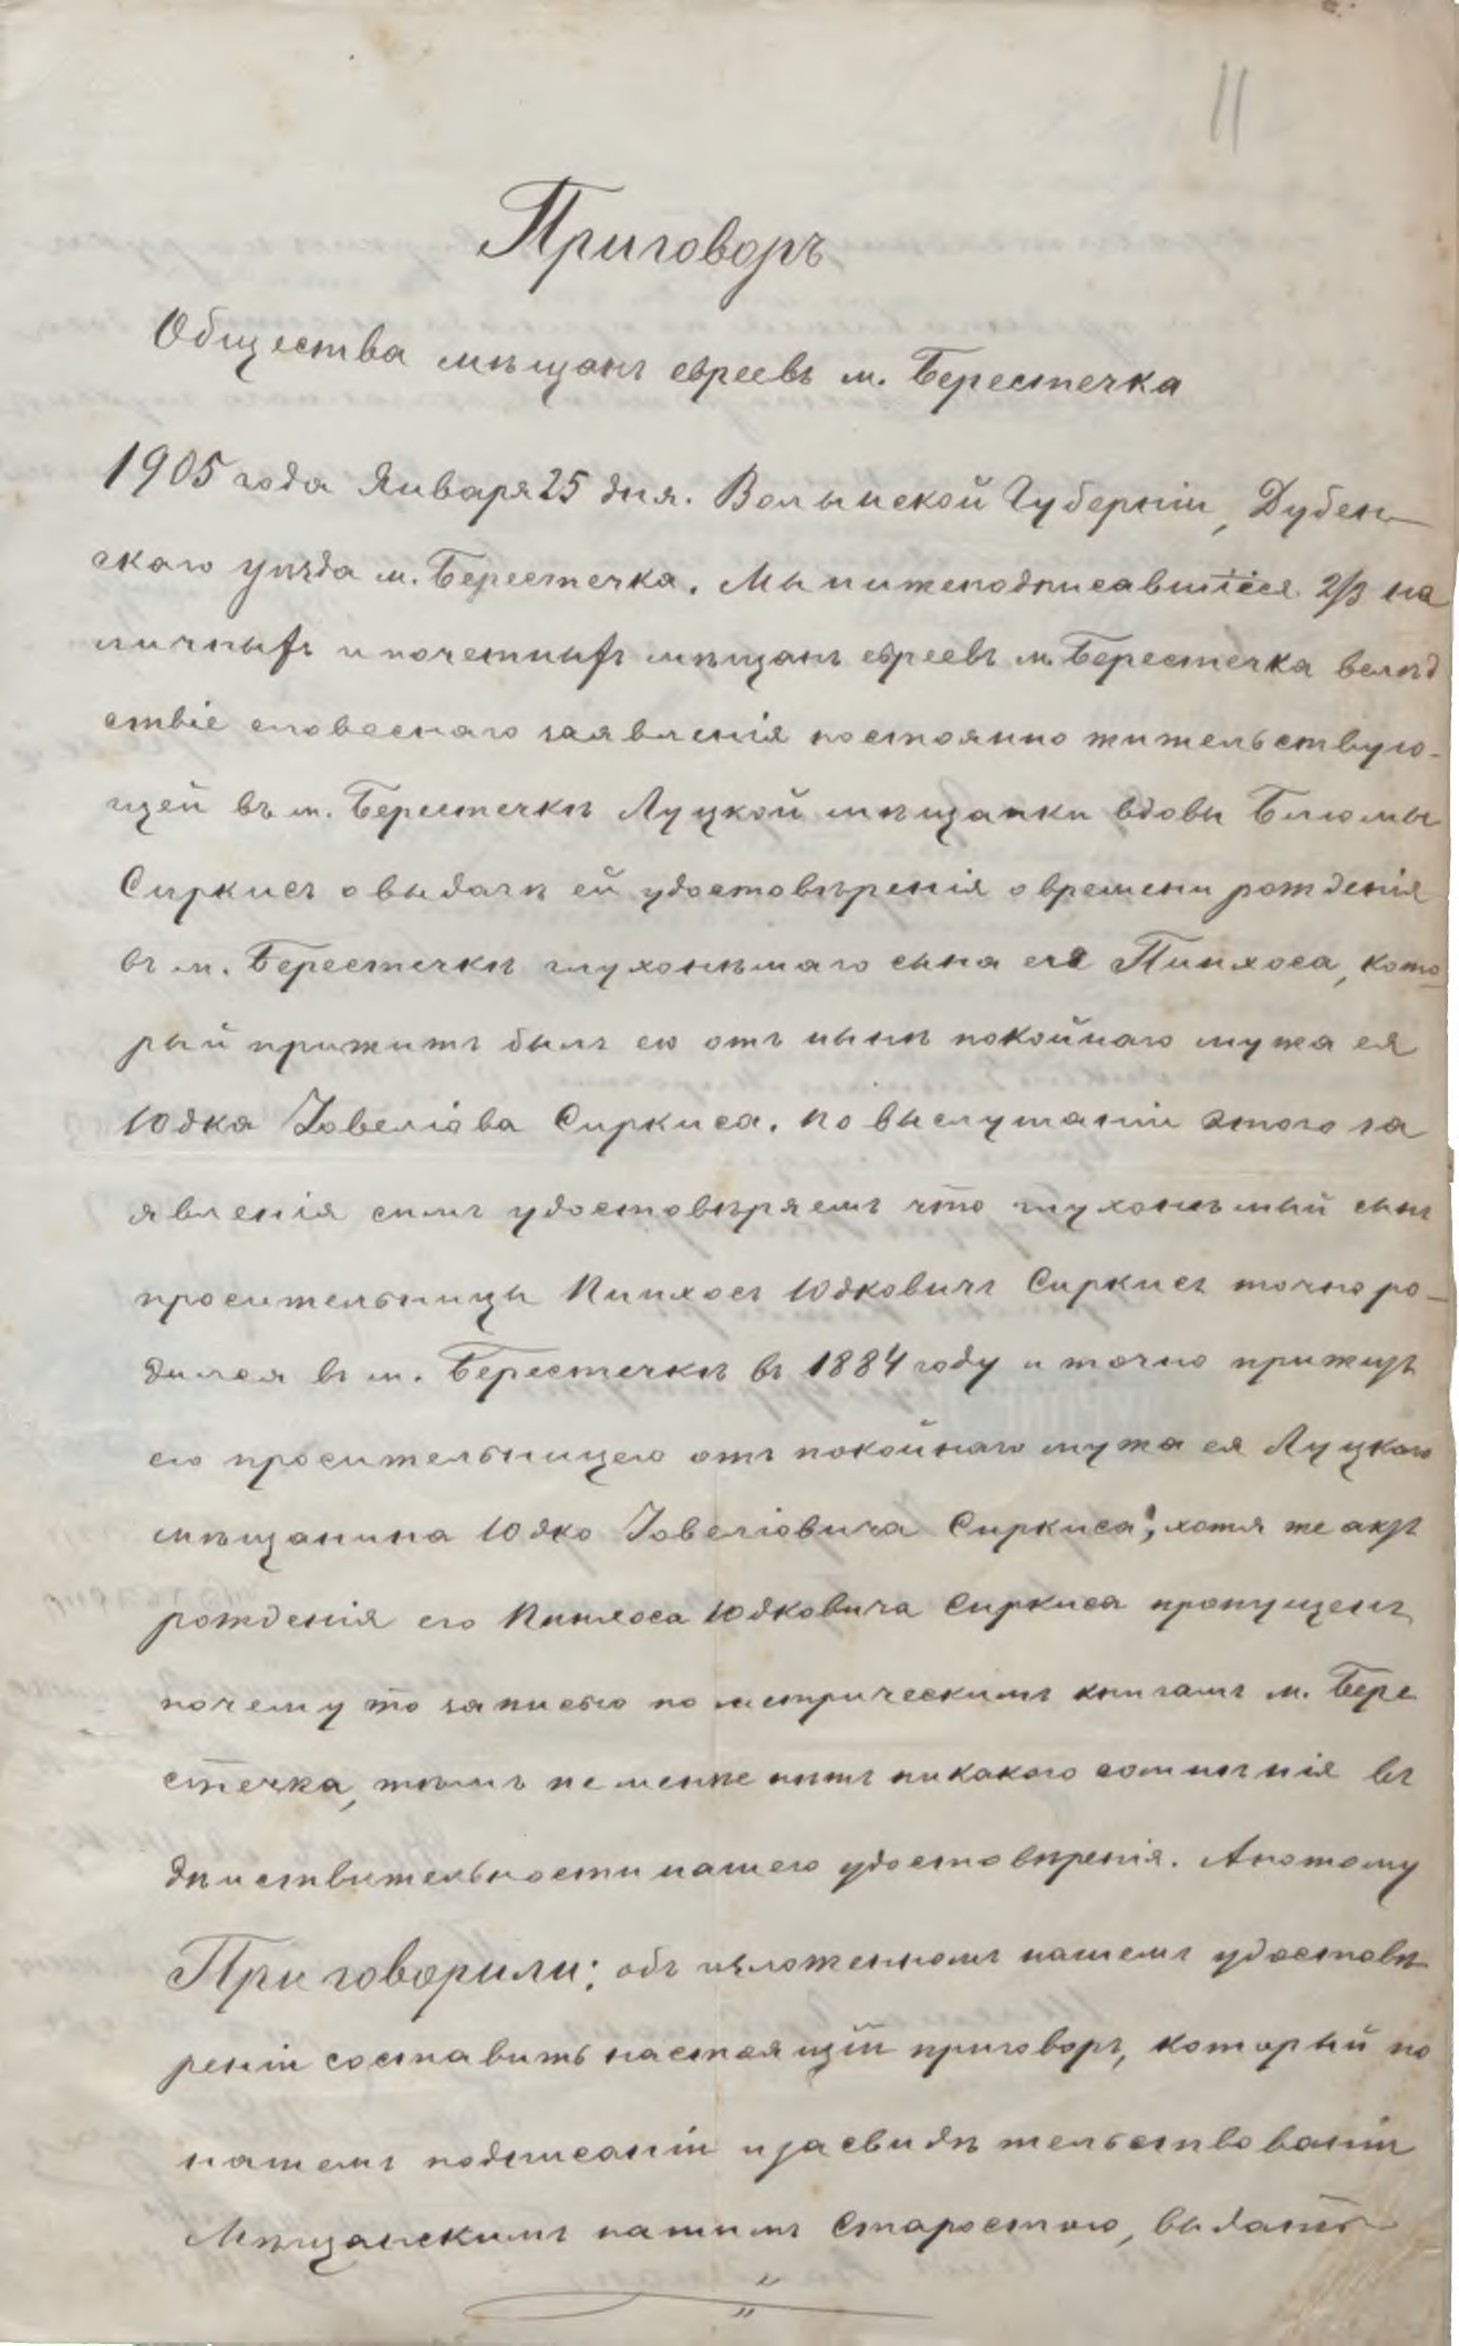 11
Приговоръ
Общества мѣщанъ евреевъ м. Берестечка
1905 года Января 25 дня. Волынской Губерніи, Дубен-
скаго уѣзда м. Берестечка. Мы нижеподписавшіеся 2/3 на
личныхъ и почетныхъ мѣщанъ евреевъ м. Берестечка вслѣд
ствіе словеснаго заявленія постоянно жительствую-
щей въ м. Берестечкѣ Луцкой мѣщанки вдовы Блюмы
Сиркисъ о выдачѣ ей удостовѣренія о времени рожденія
въ м. Берестечкѣ глухонѣмаго сына ея Пинхоса, кото-
рый прижитъ былъ ею отъ нынѣ покойнаго мужа ея
Юдка Іовеліова Сиркиса. По выслушаніи этого за
явленія симъ удостовѣряемъ что глухонѣмый сынъ
просительницы Пинхосъ Юдковичъ Сиркисъ точно ро-
дился въ м. Берестечкѣ въ 1884 году и точно прижитъ
ею просительницею отъ покойнаго мужа ея Луцкаго
мѣщанина Юдко Іовеліовича Сиркиса; хотя же актъ
рожденія его Пинхоса Юдковича Сиркиса пропущенъ
почему то записью по метрическимъ книгамъ м. Бере
стечка, тѣмъ не менѣе нѣтъ никакого сомнѣнія въ
дѣйствительности нашего удостовѣренія. А потому
Приговорили: объ изложенномъ нашемъ удостовѣ
реніи составить настоящій приговоръ, который по
нашемъ подписаніи и засвидѣтельствованіи
Мѣщанскимъ нашимъ Старостою, выдать